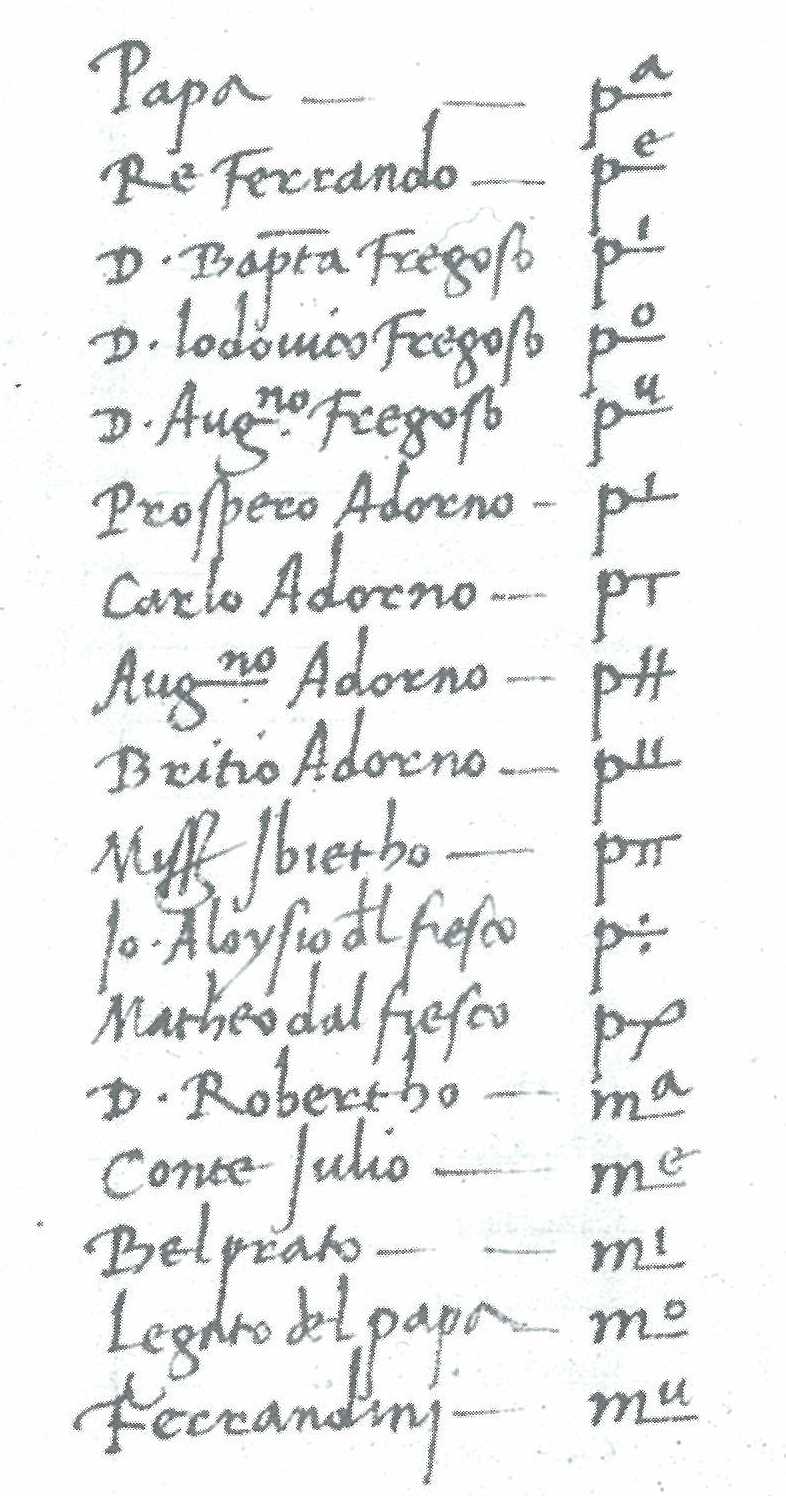 Papa — — pᵃ
Re Ferrando — pᵉ
D. Bap̄ta Fregoso pⁱ
D. lodouico Fregoso pᵒ
D. Augⁿᵒ. Fregoso pᵘ
Prospero Adorno - p⊥
Carlo Adorno — pT
Augⁿᵒ Adorno — p
Britio Adorno — p
Sbietho — pπ
Jo. Aloysio dl fiesco p:
Matheo dal fiesco p
D. Robertho — mᵃ
Conte Julio — mᵉ
Belprato — — mⁱ
Legato del papa — mᵒ
Ferrandinj — mᵘ